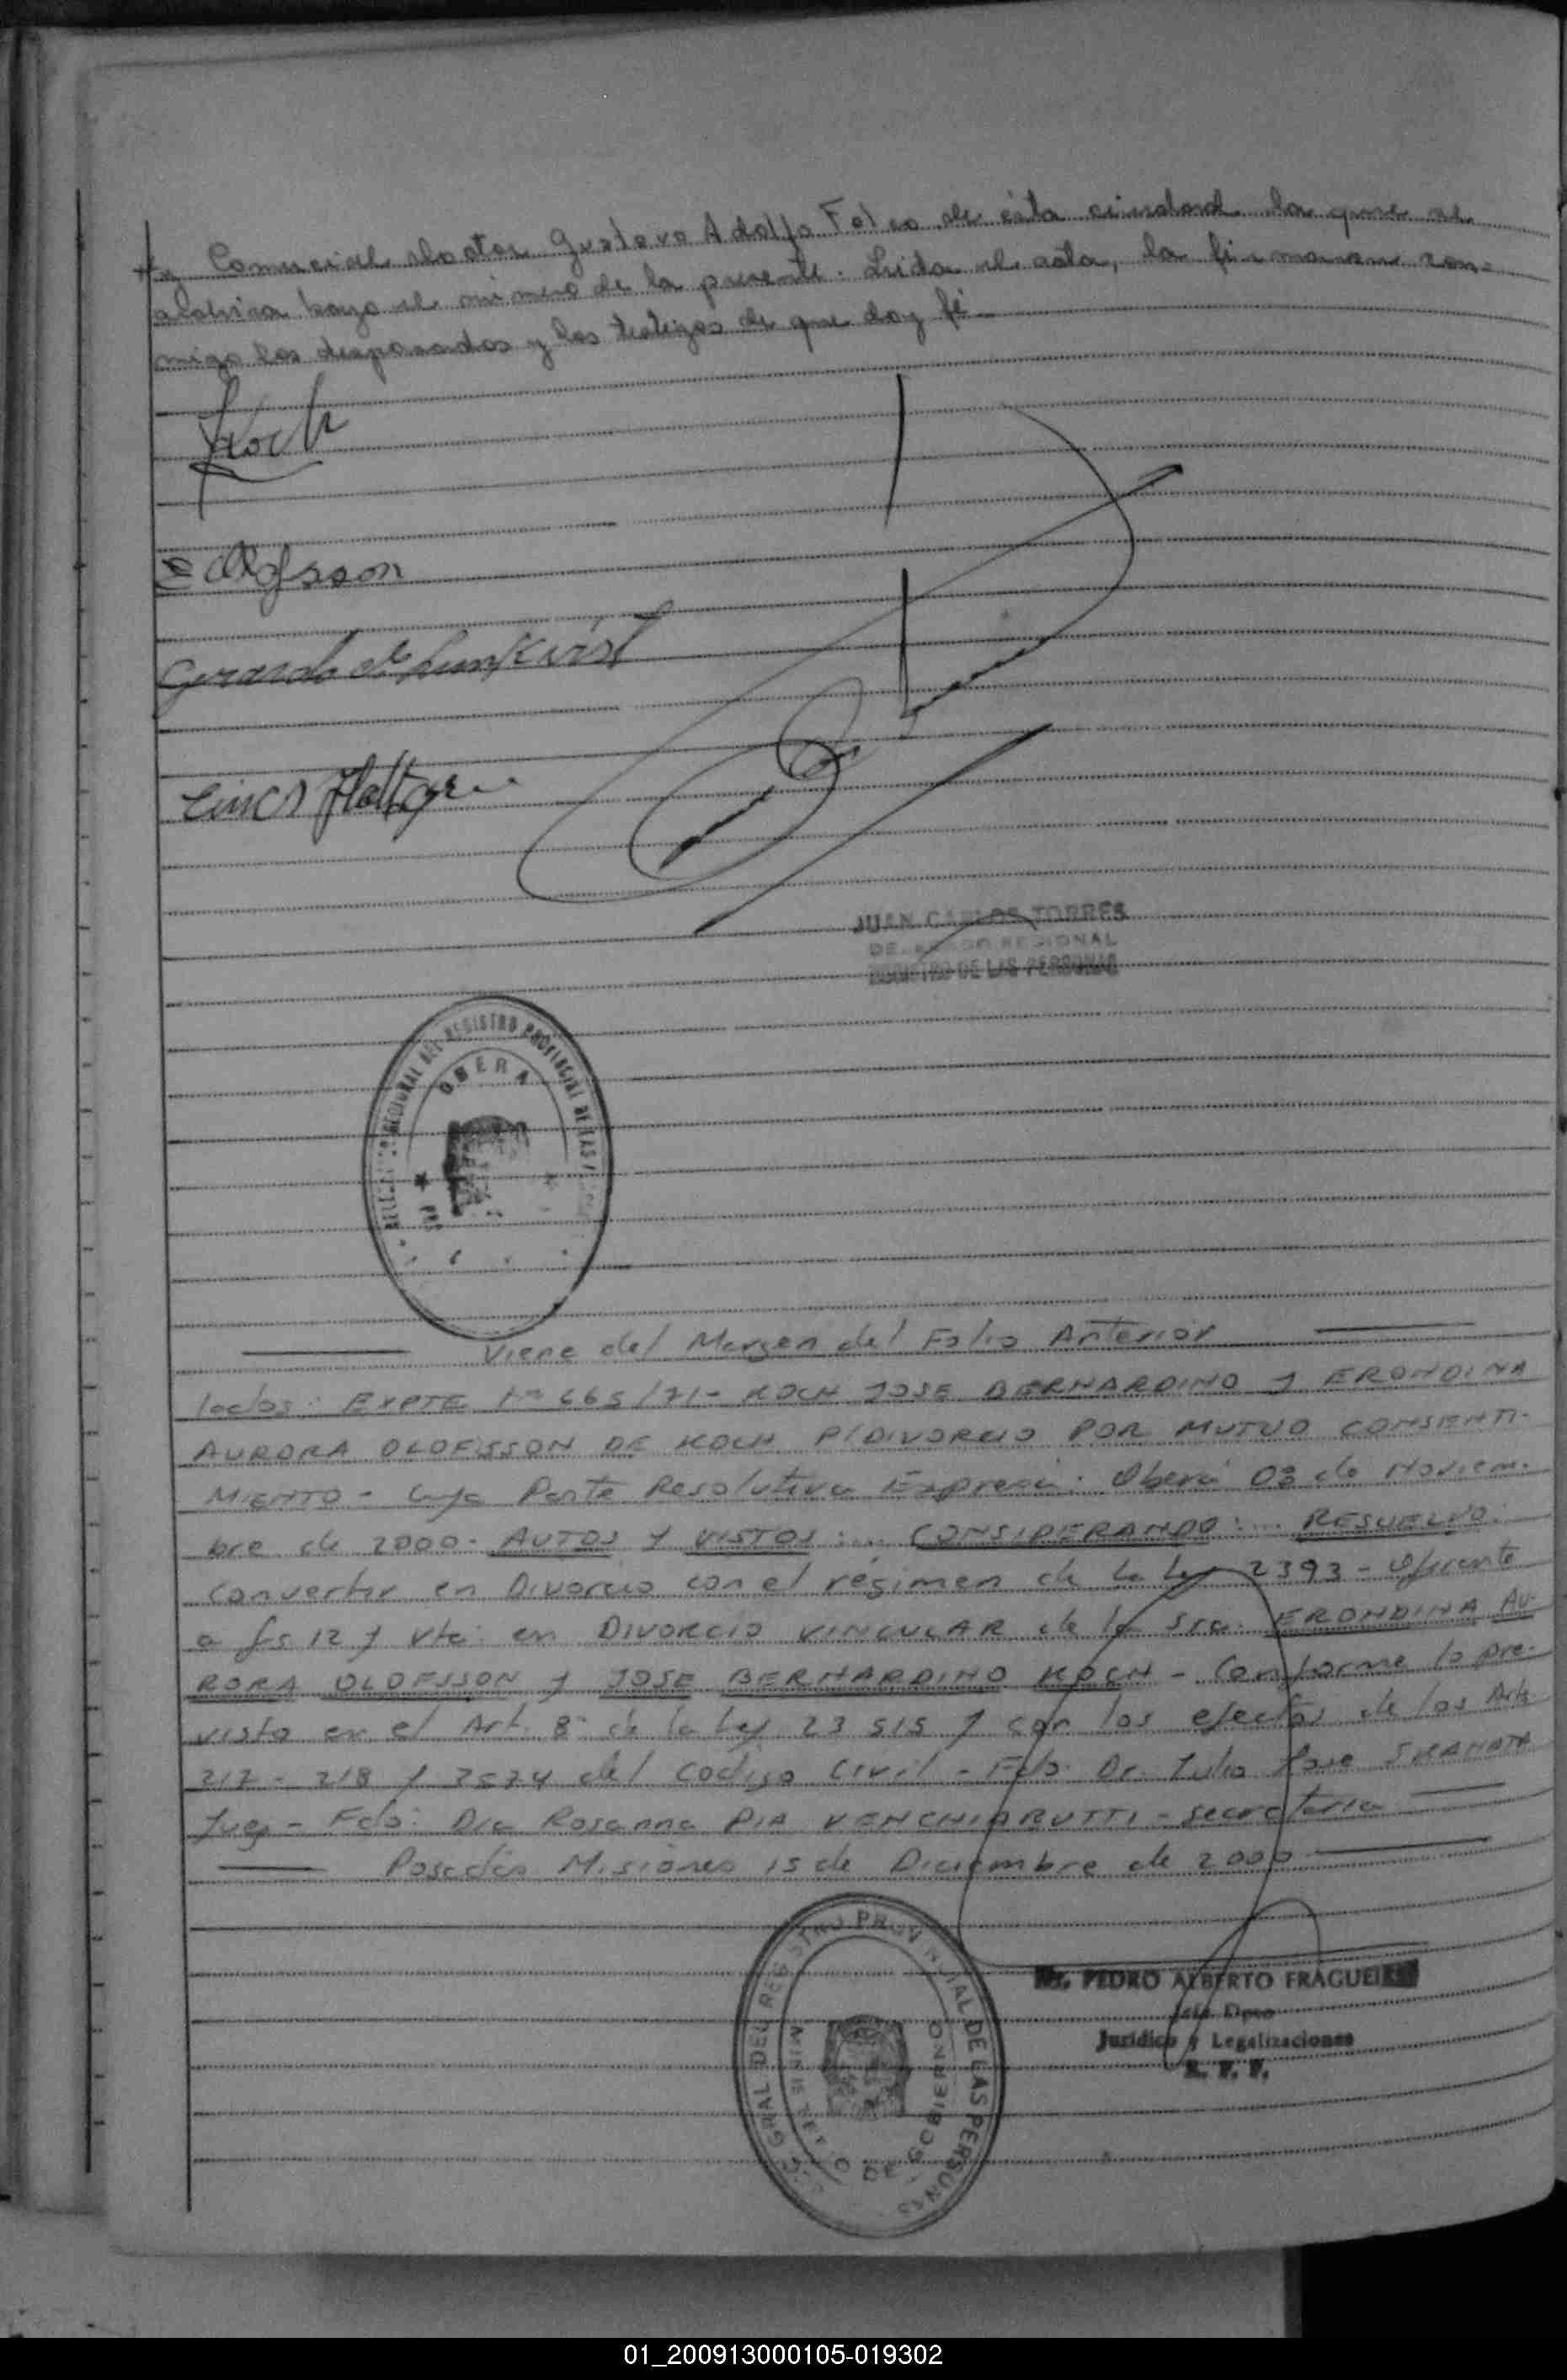 y Comercial doctor Gustavo Adolfo de esta ciudad la que se
archiva bajo el número de la presente. Leida el acta, la firmaron con-
migo los desposados y los testigos de que doy fé.-
Koch
E Olofsson
Gerardo
JUAN CARLOS TORRES
DELEGADO REGIONAL
REGISTRO DE LAS PERSONAS
REGIONAL DEL REGISTRO PROVINCIAL DE LAS
OBERA
Viene del Margen del Folio Anterior
lados: EXPTE Nº 665/71- KOCH JOSE BERNARDINO y ERONDINA
AURORA OLOFSSON DE KOCH P/DIVORCIO POR MUTUO CONSENTI-
MIENTO - Cuya Parte Resolutiva Expresa: Oberá 08 de Noviem-
bre de 2000. AUTOS Y VISTOS:... CONSIDERANDO:... RESUELVO:
Convertir en Divorcio con el régimen de la Ley 2393 - obrante
a fs 12 y vta: en DIVORCIO VINCULAR de la Sra. ERONDINA AU-
RORA OLOFSSON y JOSE BERNARDINO KOCH - Conforme lo pre-
visto en el Art. 8º de la Ley 23 515 y con los efectos de los Arts
217 - 218 y 3574 del Codigo Civil - Fdo. Dr. Julio Jose
Juez - Fdo: Dra Rosanna PIA VENCHIARUTTI - secretaria
Posadas Misiones 15 de Diciembre de 2000
Dr. PEDRO ALBERTO FRAGUEIRO
Jefe Dpto
Jurídico y Legalizaciones
R. P. P.
GRAL DEL REGISTRO PROVINCIAL DE LAS PERSONAS
MINISTERIO DE GOBIERNO
01_200913000105-019302